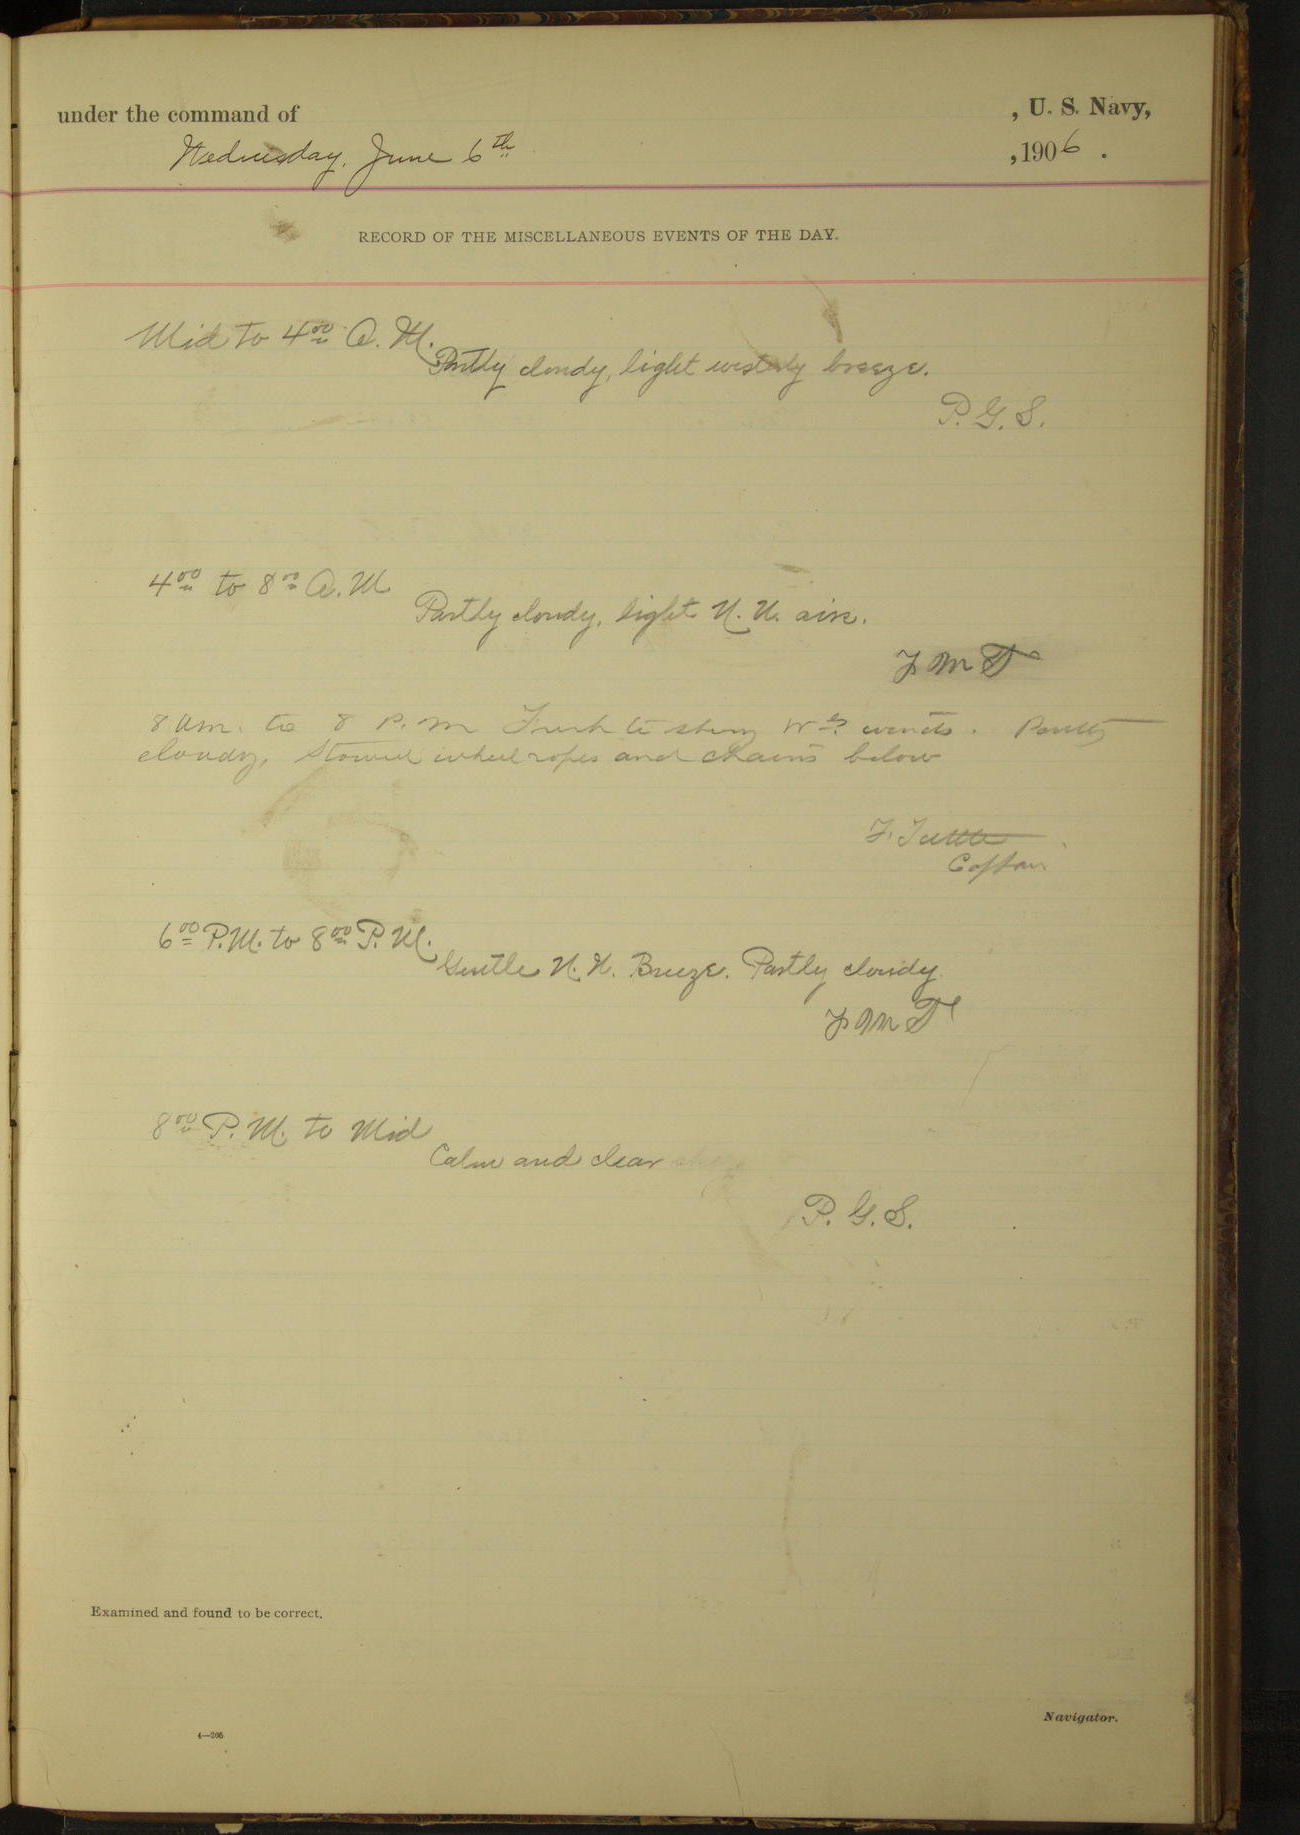 under the command of , U. S. Navy,
Wednesday, June 6th ,1906 .
RECORD OF THE MISCELLANEOUS EVENTS OF THE DAY.
Mid to 4 00 A. M.
Partly cloudy, light westerly breeze.
P. G. S.
4 00 to 8 00 A. M
Partly cloudy, light N. W. airs.
F M T
8 am. to 8 P. m Fresh to strong Wly winds. Partly
cloudy, Stowed wheel ropes and chains below
F. Tuttle
6 00 P.M. to 8 00 P. M.
Gentle N. W. Breeze. Partly cloudy.
F M T
8 00 P. M. to Mid
Calm and clear
P. G. S.
Examined and found to be correct.
Navigator.
4—206